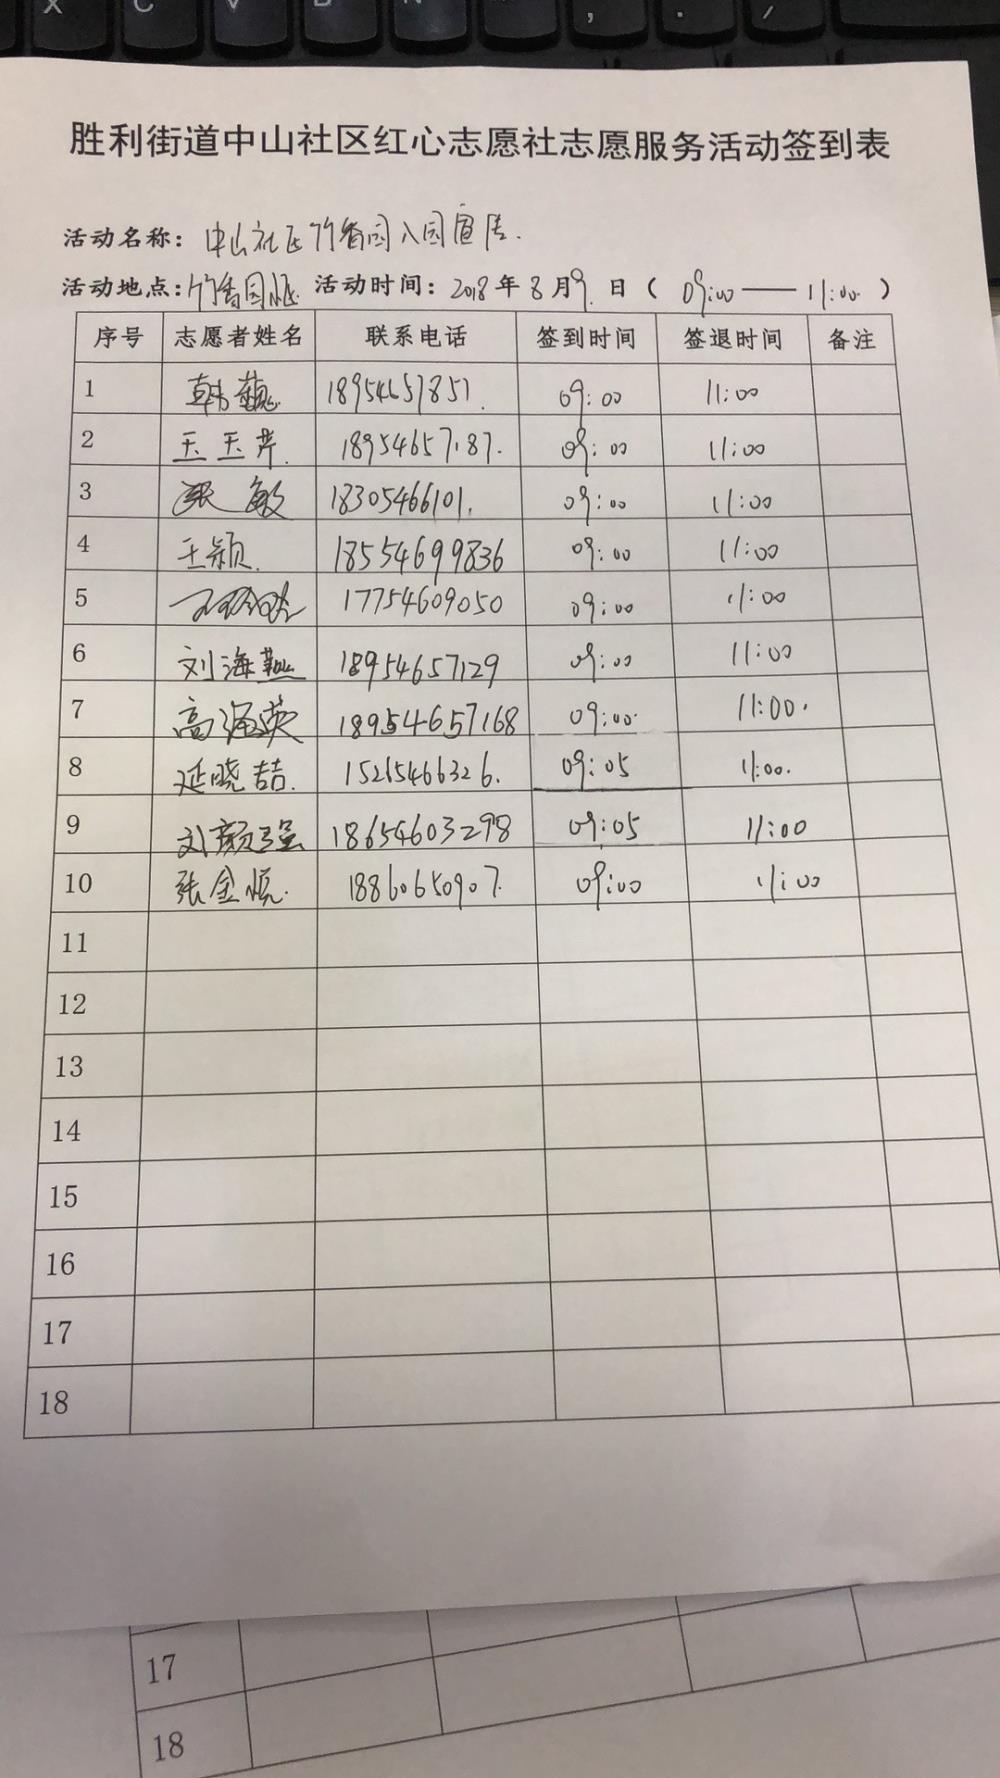 胜利街道中山社区红心志愿社志愿服务活动签到表
活动名称: 中山社区竹香园入园宣传.
活动地点: 竹香园 活动时间: 2018年8月9日 ( 09:00 —— 11:00 )
序号 志愿者姓名 联系电话 签到时间 签退时间 备注
1 韩巍 18954657851 09:00 11:00
2 王玉芹. 18954657187. 09:00 11:00
3 张敏 18305466101. 09:00 11:00
4 王颖. 18554699836 09:00 11:00
5 17754609050 09:00 11:00
6 刘海燕 18954657129 09:00 11:00
7 高海英 18954657168 09:00 11:00.
8 延晓喆. 15265466326. 09:05 11:00.
9 刘颜强 18654603298 09:05 11:00
10 张金悦. 18860650907. 09:00 11:00
11
12
13
14
15
16
17
18
17
18